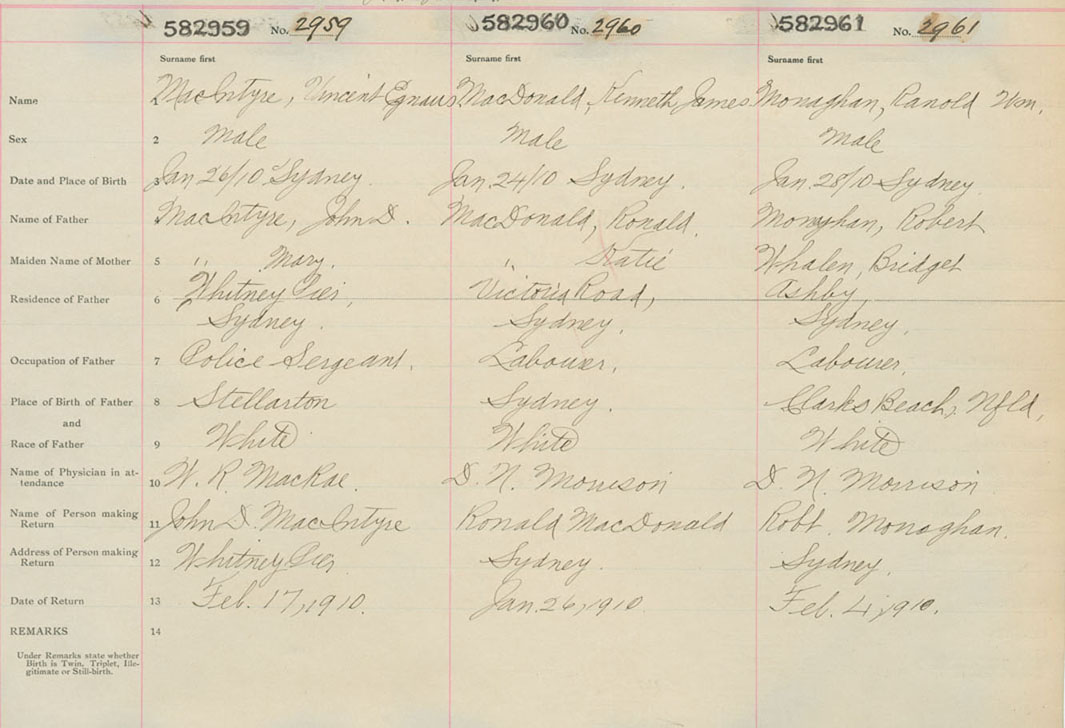 582959 No. 2959 582960 No. 2960 582961 No. 2961
Surname first Surname first Surname first
Name MacIntyre, Vincent Egnaus MacDonald, Kenneth James Monaghan, Ranold Wm.
Sex 2 Male Male Male
Date and Place of Birth 3 Jan 26/10 Sydney. Jan. 24/10 Sydney. Jan. 28/10 Sydney.
Name of Father MacIntyre, John D. MacDonald, Ronald. Monaghan, Robert
Maiden Name of Mother 5 " Mary. " Katie Whalen, Bridget
Residence of Father 6 Whitney Pier, Victoria Road, Ashby,
Sydney. Sydney. Sydney.
Occupation of Father 7 Police Sergeant. Labourer. Labourer.
Place of Birth of Father 8 Stellarton Sydney. Clarks Beach, Nfld,
and
Race of Father 9 White White White
Name of Physician in at-
tendance 10 W. R. MacRae. D. N. Morrison D. N. Morrison
Name of Person making
Return 11 John D. MacIntyre Ronald MacDonald Robt. Monaghan.
Address of Person making
Return 12 Whitney Pier Sydney. Sydney.
Date of Return 13 Feb. 17, 1910. Jan. 26, 1910 Feb. 4, 1910.
REMARKS 14
Under Remarks state whether
Birth is Twin, Triplet, Ille-
gitimate or Still-birth.